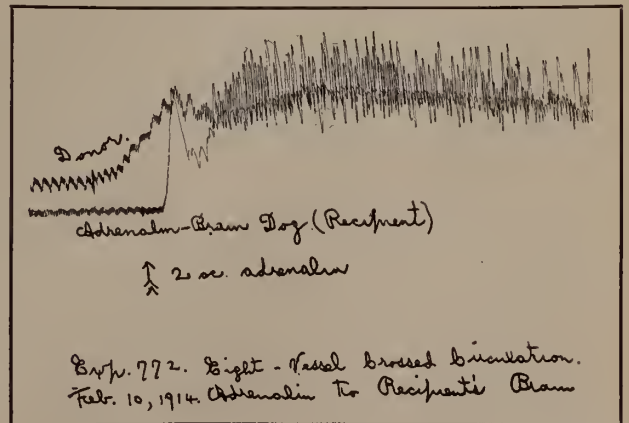 Donor.
Adrenalin-Brain Dog (Recipient)
2 cc. adrenalin
Exp. 772. Eight-Vessel Crossed Circulation.
Feb. 10, 1914. Adrenalin to Recipient's Brain